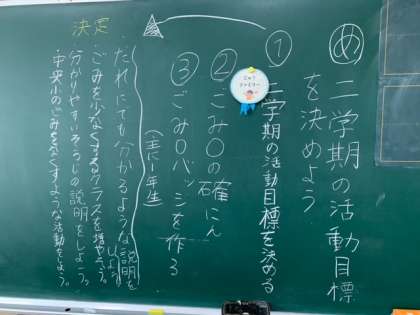 め 二学期の活動目標
を決めよう
① 二学期の活動目標を決める
② ごみ〇の確にん
③ ごみ〇バッジを作る
(主に1年生)
だれにでも分かるような説明を
しよう。
決定
・ごみを少なくするクラスを増やそう。
・分かりやすいそうじの説明をしよう。
・中央小のごみをなくすような活動をしよう。